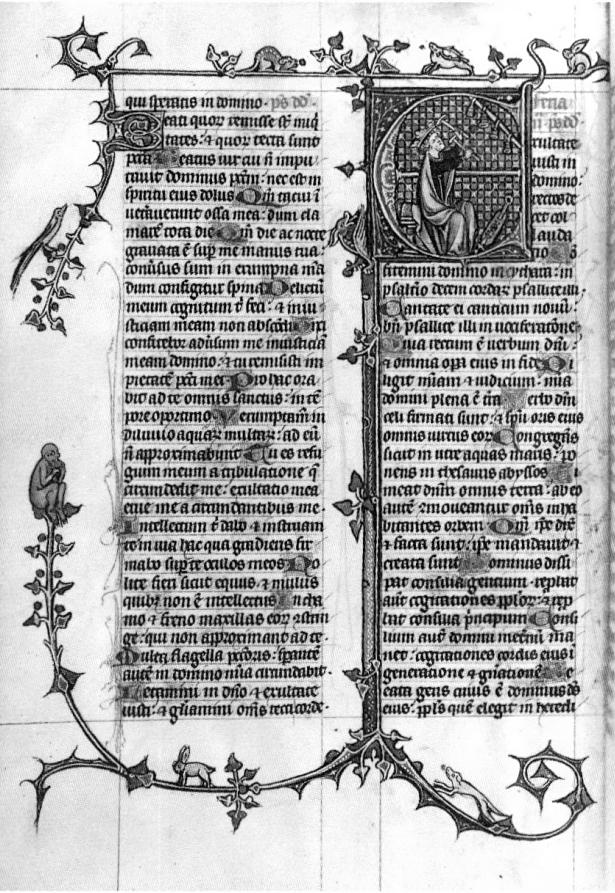 qui speratis in domino. ps dd.
Beati quor remisse st iniq
tates: & quor tecta sunt
pcca Beatus vir cui n impu
tavit dominus pccm: nec est in
spiritu eius dolus Qm tacui i
veteraverunt ossa mea: dum cla
marē tota die Qm die ac nocte
gravata ē sup me manus tua:
conversus sum in erumpna mea
dum configitur spina Delictū
meum cognitum t feci: & iniu
sticiam meam non abscondi Dixi
confitebor adversum me iniusticiā
meam domino: & tu remisisti im
pietatē pcci mei Pro hac ora
bit ad te omnis sanctus: in tē
pore oportuno Verumptamē in
diluvio aquar multar: ad eū
n approximabunt Tu es refu
gium meum a tribulatione q
circumdedit me: exultatio mea
erue me a circumdantibus me.
Intellectum t dabo & instruam
te in via hac qua gradieris fir
mabo super te oculos meos No
lite fieri sicut equus: & mulus
quibus non ē intellectus In cha
mo & freno maxillas eor gstrin
ge: qui non approximant ad te.
Multa flagella pctoris: sperantē
autē in domino mia circumdabit.
Letamini in dno & exultate
iusti: & gliamini oms recti corde.
xultate
iusti in
domino:
rectos de
cet col
lauda
no
fitemini domino in cythara: in
psalterio decem cordar psallite illi.
Cantate ei canticum novū:
bn psallite illi in vociferatione
Quia rectum ē verbum dni:
& omnia opa eius in fide Di
ligit miam & iudicium: mia
domini plena ē tra Verbo dni
celi firmati sunt: & spu oris eius
omnis virtus eor Congregans
sicut in utre aquas maris: po
nens in thesauris abyssos Ti
meat dnm omnis terra: ab eo
autē gmoveantur oms inha
bitantes orbem Qm ipe dix
& facta sunt: ipe mandavit &
creata sunt Dominus dissi
pat consilia gentium: reprobat
aut cogitationes pplor: & rep
bat consilia principum Consi
lium aut domini metnū ma
net: cogitationes cordis eius i
generatione & gnatione Be
ata gens cuius ē dominus ds
eius: ppls quē elegit in heredi